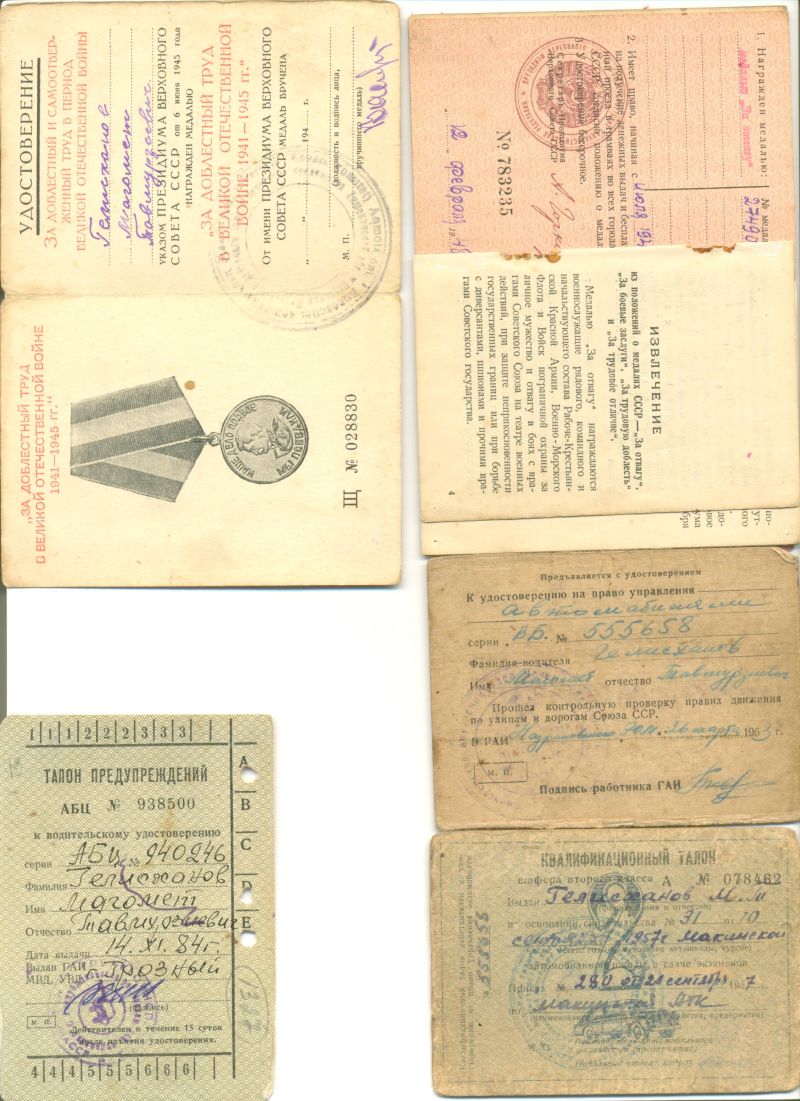 УДОСТОВЕРЕНИЕ
ЗА ДОБЛЕСТНЫЙ И САМООТВЕР-
ЖЕННЫЙ ТРУД В ПЕРИОД
ВЕЛИКОЙ ОТЕЧЕСТВЕННОЙ ВОЙНЫ
Гелисханов
Магомет
УКАЗОМ ПРЕЗИДИУМА ВЕРХОВНОГО
СОВЕТА СССР от 6 июня 1945 года
НАГРАЖДЕН МЕДАЛЬЮ
„ЗА ДОБЛЕСТНЫЙ ТРУД
В ВЕЛИКОЙ ОТЕЧЕСТВЕННОЙ
ВОЙНЕ 1941—1945 гг.“
От имени ПРЕЗИДИУМА ВЕРХОВНОГО
СОВЕТА СССР МЕДАЛЬ ВРУЧЕНА
194 г.
М. П.
(должность и подпись лица,
вручившего медаль)
„ЗА ДОБЛЕСТНЫЙ ТРУД
В ВЕЛИКОЙ ОТЕЧЕСТВЕННОЙ ВОЙНЕ
1941—1945 гг.“
НАШЕ ДЕЛО ПРАВОЕ
МЫ ПОБЕДИЛИ
Щ № 028830
1. Награжден медалью:
медаль „За отвагу“
№ медал
27490
2. Имеет право, начиная с июля 194
на получение денежных выдач и бесплат
ной проезд в трамваях во всех города
СССР, согласно положению о медал
3. Удостоверение бессрочное.
Секретарь Президиума
Верховного Совета СССР
А Горкин
№ 783235
12 февраля 1948
ИЗВЛЕЧЕНИЕ
из положений о медалях СССР — „За отвагу“,
„За боевые заслуги“, „За трудовую доблесть“
и „За трудовое отличие“.
Медалью „За отвагу“ награждаются
военнослужащие рядового, командного и
начальствующего состава Рабоче-Крестьян-
ской Красной Армии, Военно-Морского
Флота и Войск пограничной охраны за
личное мужество и отвагу в боях с вра-
гами Советского Союза на театре военных
действий, при защите неприкосновенности
государственных границ или при борьбе
с диверсантами, шпионами и прочими вра-
гами Советского государства.
4
Предъявляется с удостоверением
К удостоверению на право управления
автомобилями
серии ВБ. № 555658
Фамилия водителя Гелисханов
Имя Магомет отчество
Прошел контрольную проверку правил движения
по улицам и дорогам Союза ССР.
В ГАИ 26 марта 1963 г.
М. П.
Подпись работника ГАИ
1 1 1 2 2 2 3 3 3
ТАЛОН ПРЕДУПРЕЖДЕНИЙ
АБЦ № 938500
к водительскому удостоверению
серии АБЦ № 940246
Фамилия Гелисханов
Имя Магомет
Отчество
Дата выдачи 14.XI.84г.
Выдан ГАИ Грозный
МВД, УВД
(подпись)
М. П.
Действителен в течение 15 суток
после изъятия удостоверения.
A
B
C
D
E
4 4 4 5 5 5 6 6 6
КВАЛИФИКАЦИОННЫЙ ТАЛОН
шофера второго класса А № 078462
Выдан Гелисханов М.М
(фамилия и отчество)
на основании свидетельства № 31 от 10
сентября 1957г Макинской
автомобильной о сдаче экзаменов
Приказ № 280 от 21 сентября 1957
по Макинской АТК